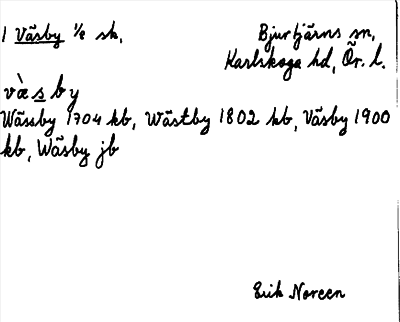 1 Väsby ¼ sk.
Bjurtjärns sn,
Karlskoga hd, Ör. l.
vàsby
Wässby 1704 kb, Wästby 1802 kb, Väsby 1900
kb, Wäsby jb
Erik Noreen